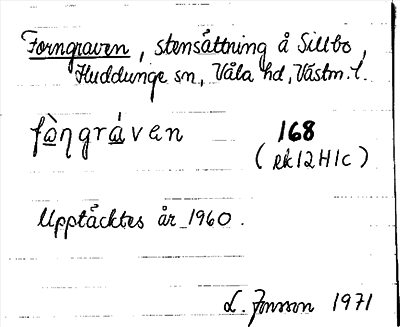 Forngraven, stensättning å Sillbo,
Huddunge sn., Våla hd, Västm. l.
fàŋgráven 168
(ek 12H1c)
Upptäcktes år 1960.
L. Jonsson 1971